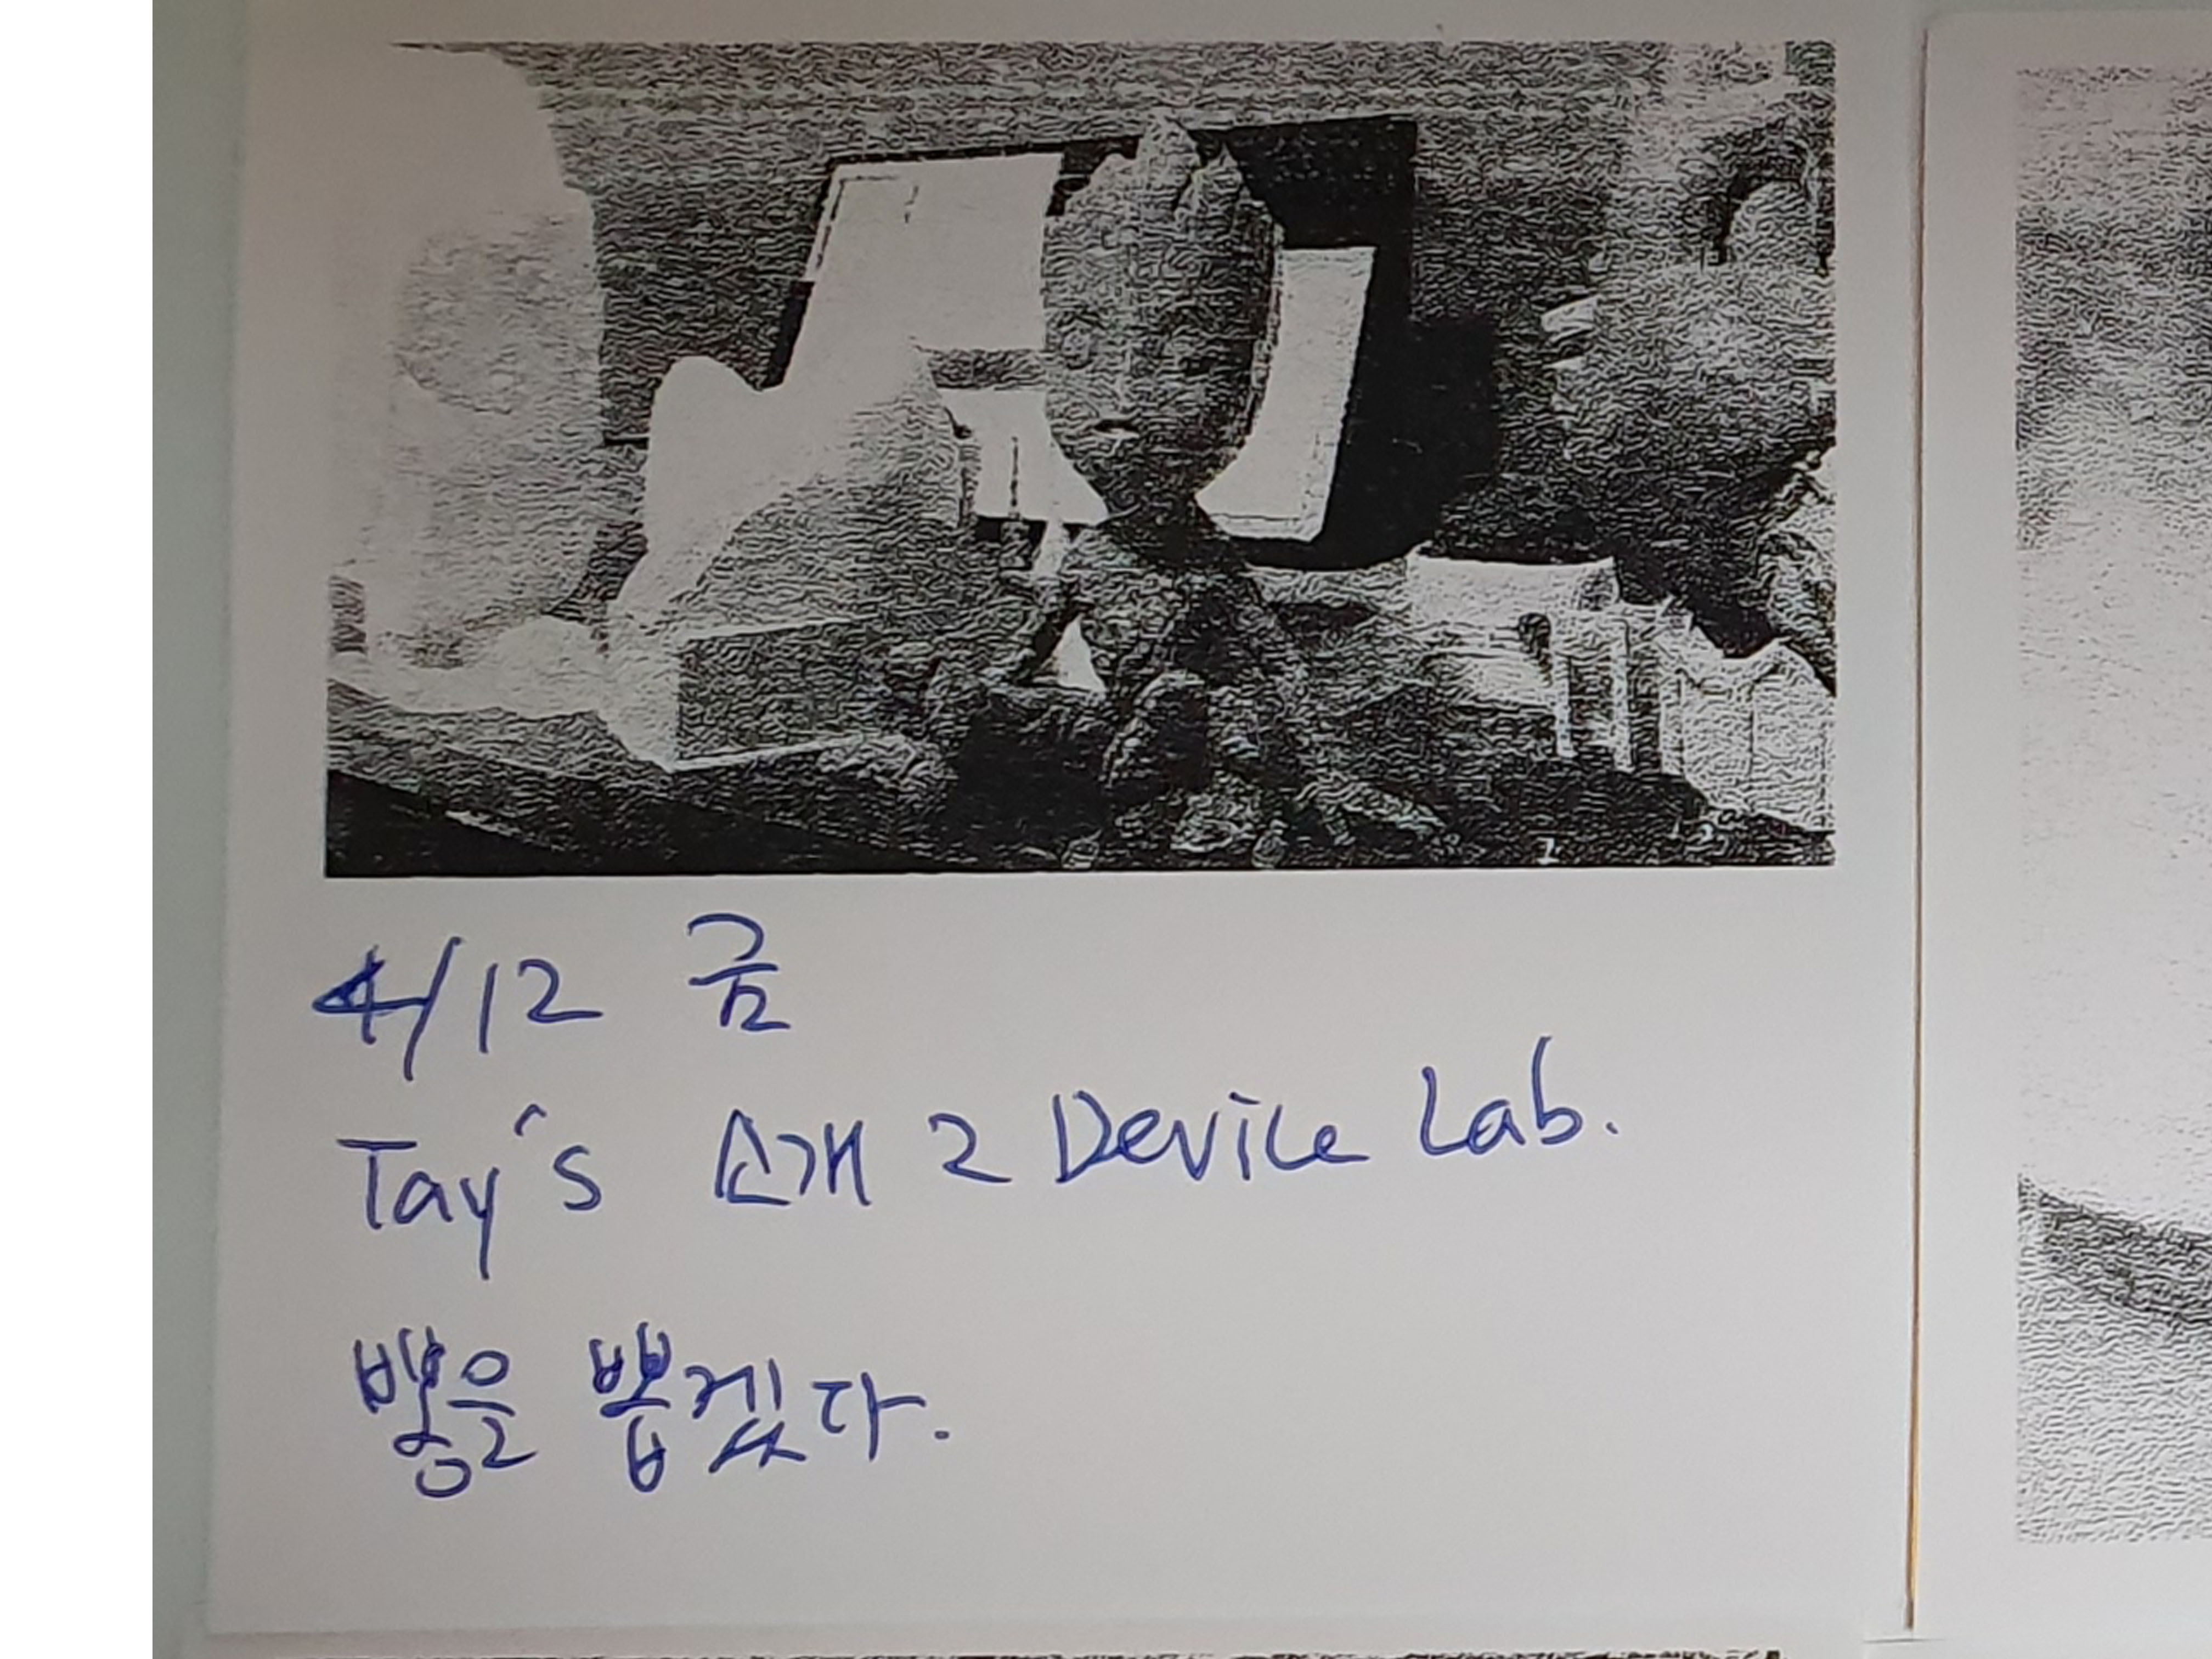 4/12 금
Tay's 소개 2 Device Lab.
뽕을 뽑겠다.